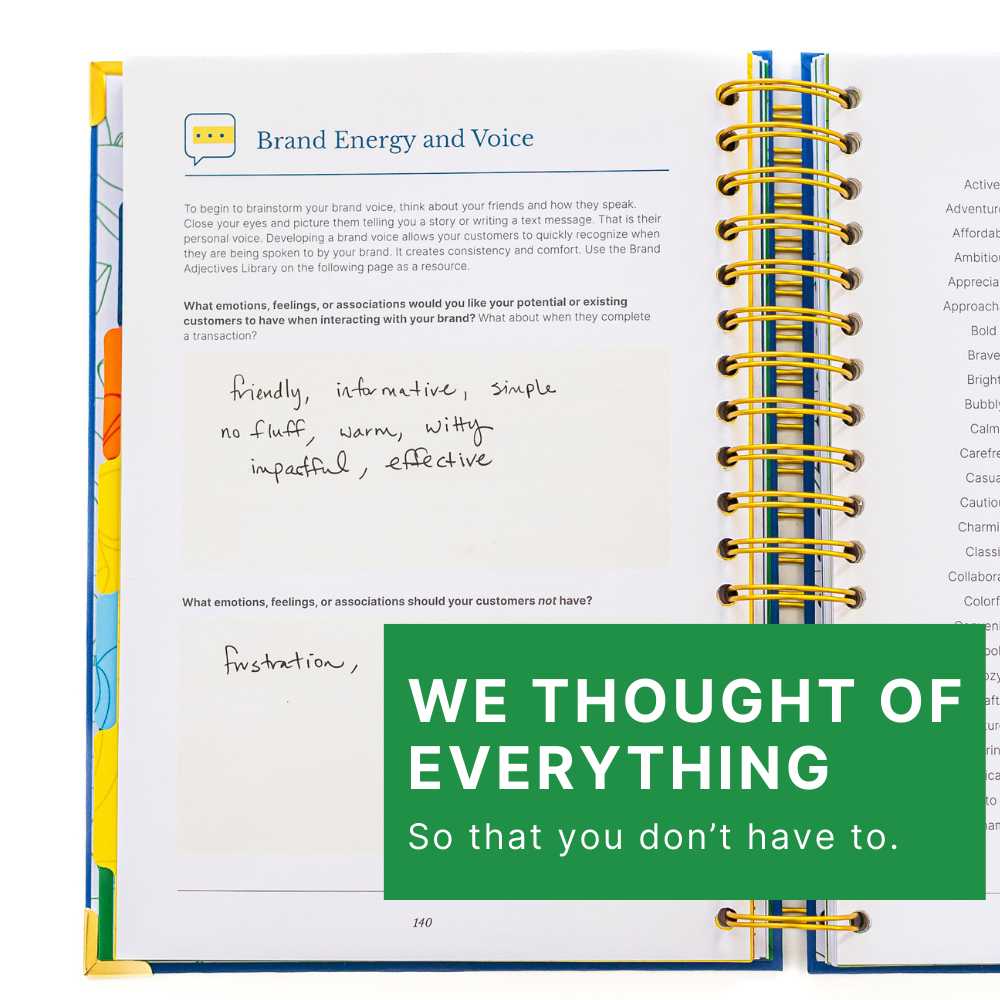 Brand Energy and Voice
To begin to brainstorm your brand voice, think about your friends and how they speak.
Close your eyes and picture them telling you a story or writing a text message. That is their
personal voice. Developing a brand voice allows your customers to quickly recognize when
they are being spoken to by your brand. It creates consistency and comfort. Use the Brand
Adjectives Library on the following page as a resource.
What emotions, feelings, or associations would you like your potential or existing
customers to have when interacting with your brand? What about when they complete
a transaction?
friendly, informative, simple
no fluff, warm, witty
impactful, effective
What emotions, feelings, or associations should your customers not have?
frustration,
140
Active
Adventur
Affordab
Ambitio
Apprecia
Approach
Bold
Brave
Bright
Bubbly
Calm
Carefre
Casua
Cautio
Charmi
Classi
Collabora
Colorf
WE THOUGHT OF
EVERYTHING
So that you don't have to.